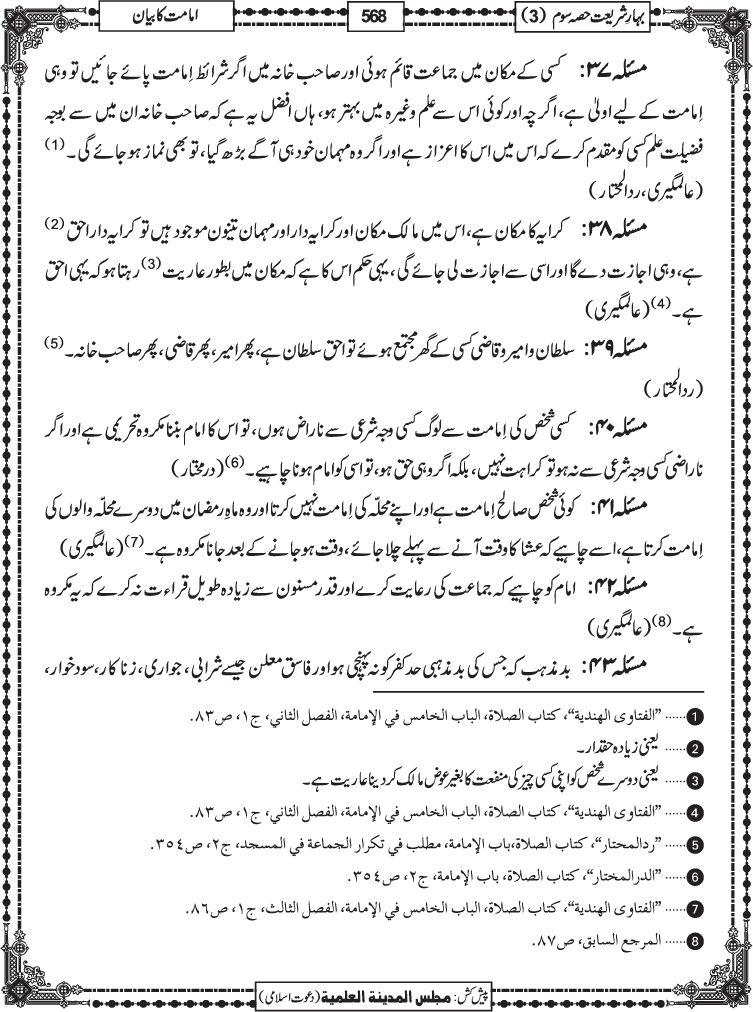 بہار شریعت حصہ سوم (3)
568
امامت کا بیان
مسئلہ ۳۷: کسی کے مکان میں جماعت قائم ہوئی اور صاحب خانہ میں اگر شرائط اِمامت پائے جائیں تو وہی
اِمامت کے لیے اولیٰ ہے، اگرچہ اور کوئی اس سے علم وغیرہ میں بہتر ہو، ہاں افضل یہ ہے کہ صاحب خانہ ان میں سے بوجہ
فضیلت علم کسی کو مقدم کرے کہ اس میں اس کا اعزاز ہے اور اگر وہ مہمان خود ہی آگے بڑھ گیا، تو بھی نماز ہو جائے گی۔ (1)
(عالمگیری، ردالمحتار)
مسئلہ ۳۸: کرایہ کا مکان ہے، اس میں مالک مکان اور کرایہ دار اور مہمان تینوں موجود ہیں تو کرایہ دار احق (2)
ہے، وہی اجازت دے گا اور اسی سے اجازت لی جائے گی، یہی حکم اس کا ہے کہ مکان میں بطور عاریت (3) رہتا ہو کہ یہی احق
ہے۔ (4) (عالمگیری)
مسئلہ ۳۹: سلطان و امیر و قاضی کسی کے گھر مجتمع ہوئے تو احق سلطان ہے، پھر امیر، پھر قاضی، پھر صاحب خانہ۔ (5)
(ردالمحتار)
مسئلہ ۴۰: کسی شخص کی اِمامت سے لوگ کسی وجہ شرعی سے ناراض ہوں، تو اس کا امام بننا مکروہ تحریمی ہے اور اگر
ناراضی کسی وجہ شرعی سے نہ ہو تو کراہت نہیں، بلکہ اگر وہی حق ہو، تو اسی کو امام ہونا چاہیے۔ (6) (درمختار)
مسئلہ ۴۱: کوئی شخص صالح اِمامت ہے اور اپنے محلّہ کی اِمامت نہیں کرتا اور وہ ماہِ رمضان میں دوسرے محلہ والوں کی
اِمامت کرتا ہے، اسے چاہیے کہ عشا کا وقت آنے سے پہلے چلا جائے، وقت ہو جانے کے بعد جانا مکروہ ہے۔ (7) (عالمگیری)
مسئلہ ۴۲: امام کو چاہیے کہ جماعت کی رعایت کرے اور قدر مسنون سے زیادہ طویل قراءت نہ کرے کہ یہ مکروہ
ہے۔ (8) (عالمگیری)
مسئلہ ۴۳: بد مذہب کہ جس کی بد مذہبی حد کفر کو نہ پہنچی ہو اور فاسق معلن جیسے شرابی، جواری، زنا کار، سود خوار،
1 ...... ”الفتاوی الھندیة“، کتاب الصلاة، الباب الخامس في الإمامة، الفصل الثاني، ج١، ص٨٣.
2 ...... یعنی زیادہ حقدار۔
3 ...... یعنی دوسرے شخص کو اپنی کسی چیز کی منفعت کا بغیر عوض مالک کر دینا عاریت ہے۔
4 ...... ”الفتاوی الھندیة“، کتاب الصلاة، الباب الخامس في الإمامة، الفصل الثاني، ج١، ص٨٣.
5 ...... ”ردالمحتار“، کتاب الصلاة،باب الإمامة، مطلب في تکرار الجماعة في المسجد، ج٢، ص٣٥٤.
6 ...... ”الدرالمختار“، کتاب الصلاة، باب الإمامة، ج٢، ص٣٥٤.
7 ...... ”الفتاوی الھندیة“، کتاب الصلاة، الباب الخامس في الإمامة، الفصل الثالث، ج١، ص٨٦.
8 ...... المرجع السابق، ص٨٧.
پیش کش: مجلس المدینة العلمیة (دعوت اسلامی)